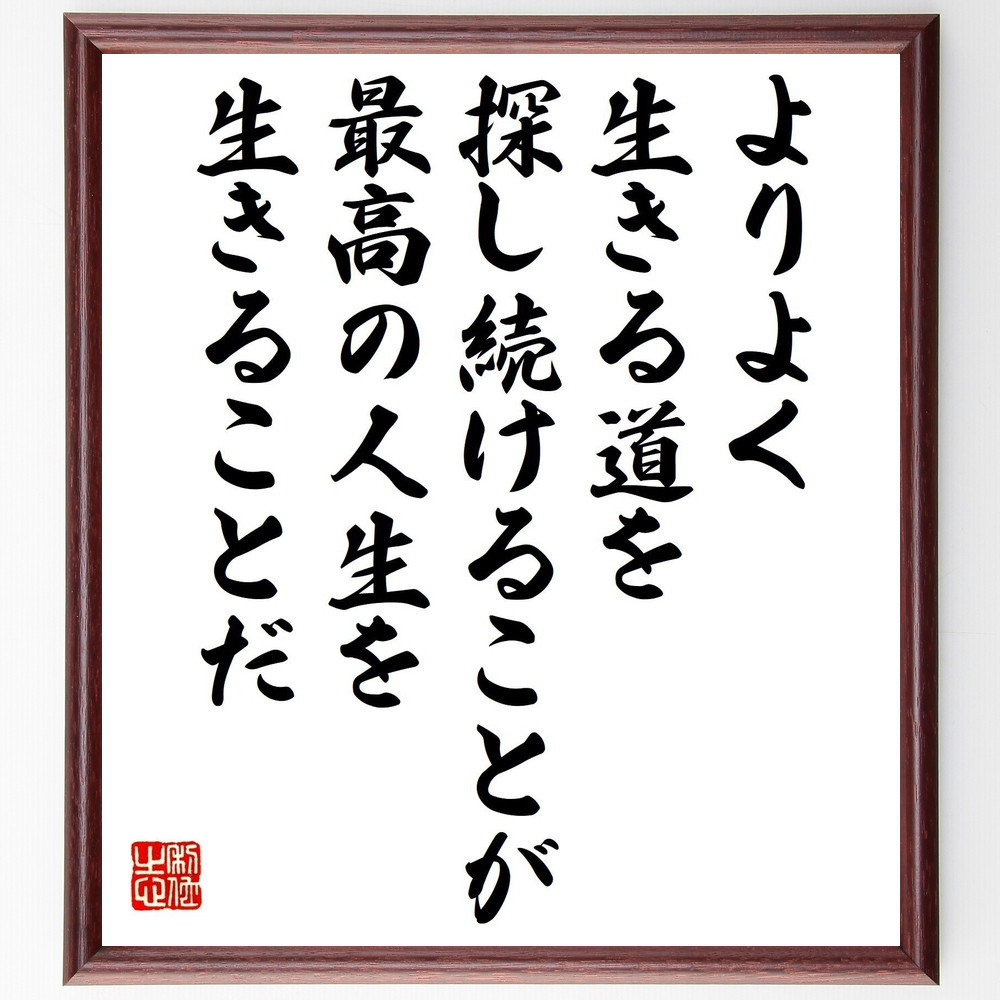 よりよく
生きる道を
探し続けることが
最高の人生を
生きることだ